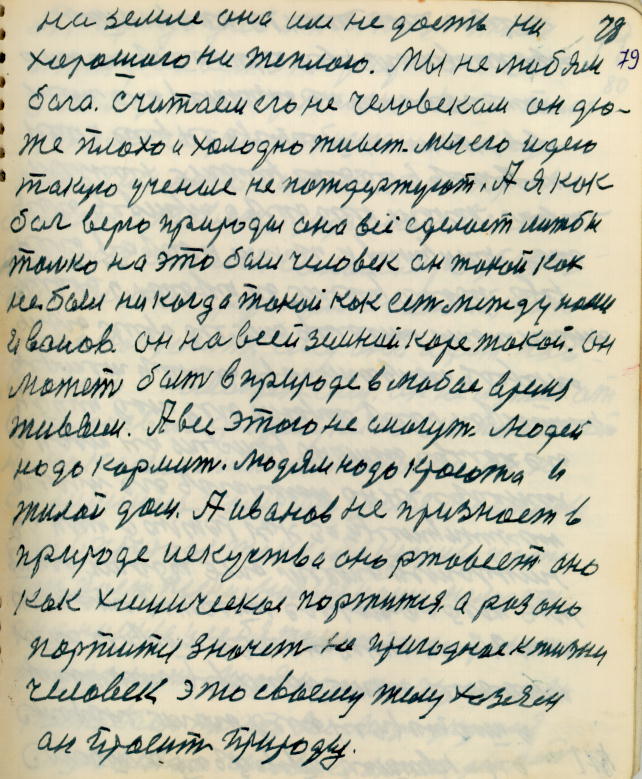 на земле она им не дость ни 78
хорошого ни теплого. Мы не любяем 79
бога. Считаем его не человеком он дю-
же плохо и холодно живет. Мы его идею
такую учение не потдержуют. А я как
бог верю природы она все сделает лижбы
только на это были человек он такой как
не были никогда такой как есть между нами
Иванов он на всей земной коре такой. он
может быт в природе в любое время
живъем. А все этого не смогут. Людей
надо кормит. Людям надо красота и
жилой дом. А иванов не признает в
природе искуства оно ржавеет оно
как химическое портится. а раз оно
портится значет не пригодное к жизни
человек это своему телу хозяен
он просит природу.